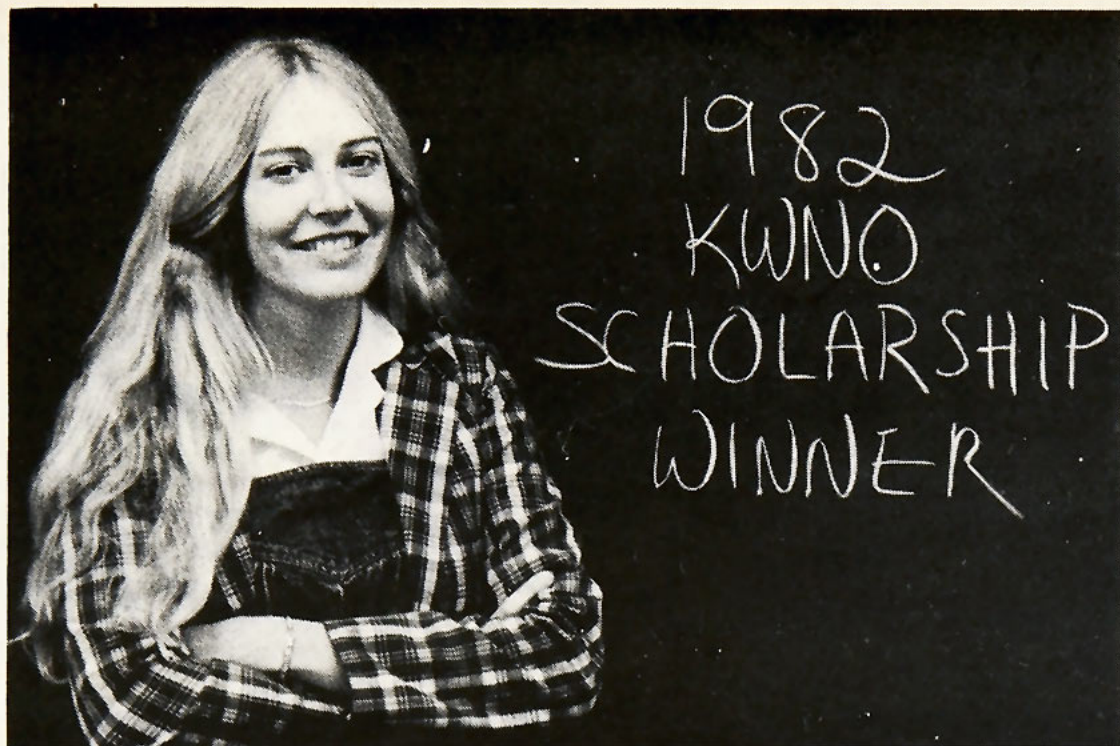 1982
KWNO
SCHOLARSHIP
WINNER